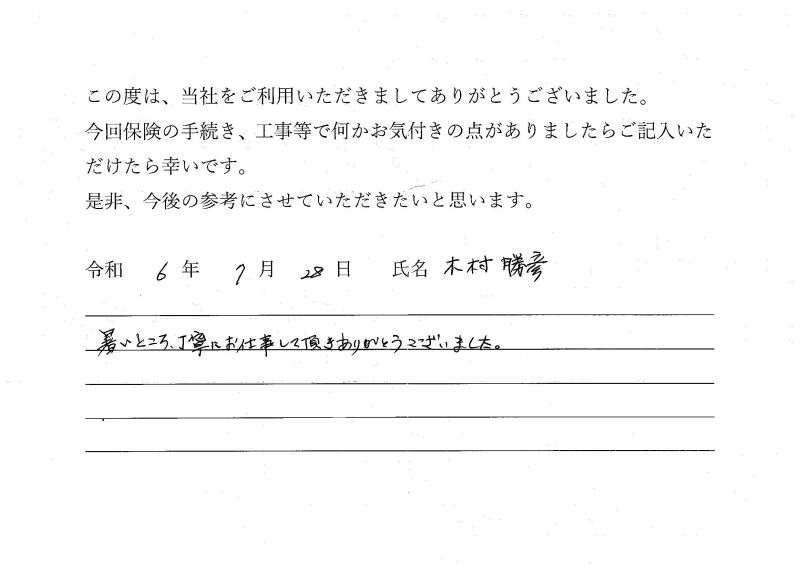 この度は、当社をご利用いただきましてありがとうございました。
今回保険の手続き、工事等で何かお気付きの点がありましたらご記入いた
だけたら幸いです。
是非、今後の参考にさせていただきたいと思います。
令和 6 年 7 月 28 日 氏名 木村 勝彦
暑いところ、丁寧にお仕事して頂きありがとうございました。